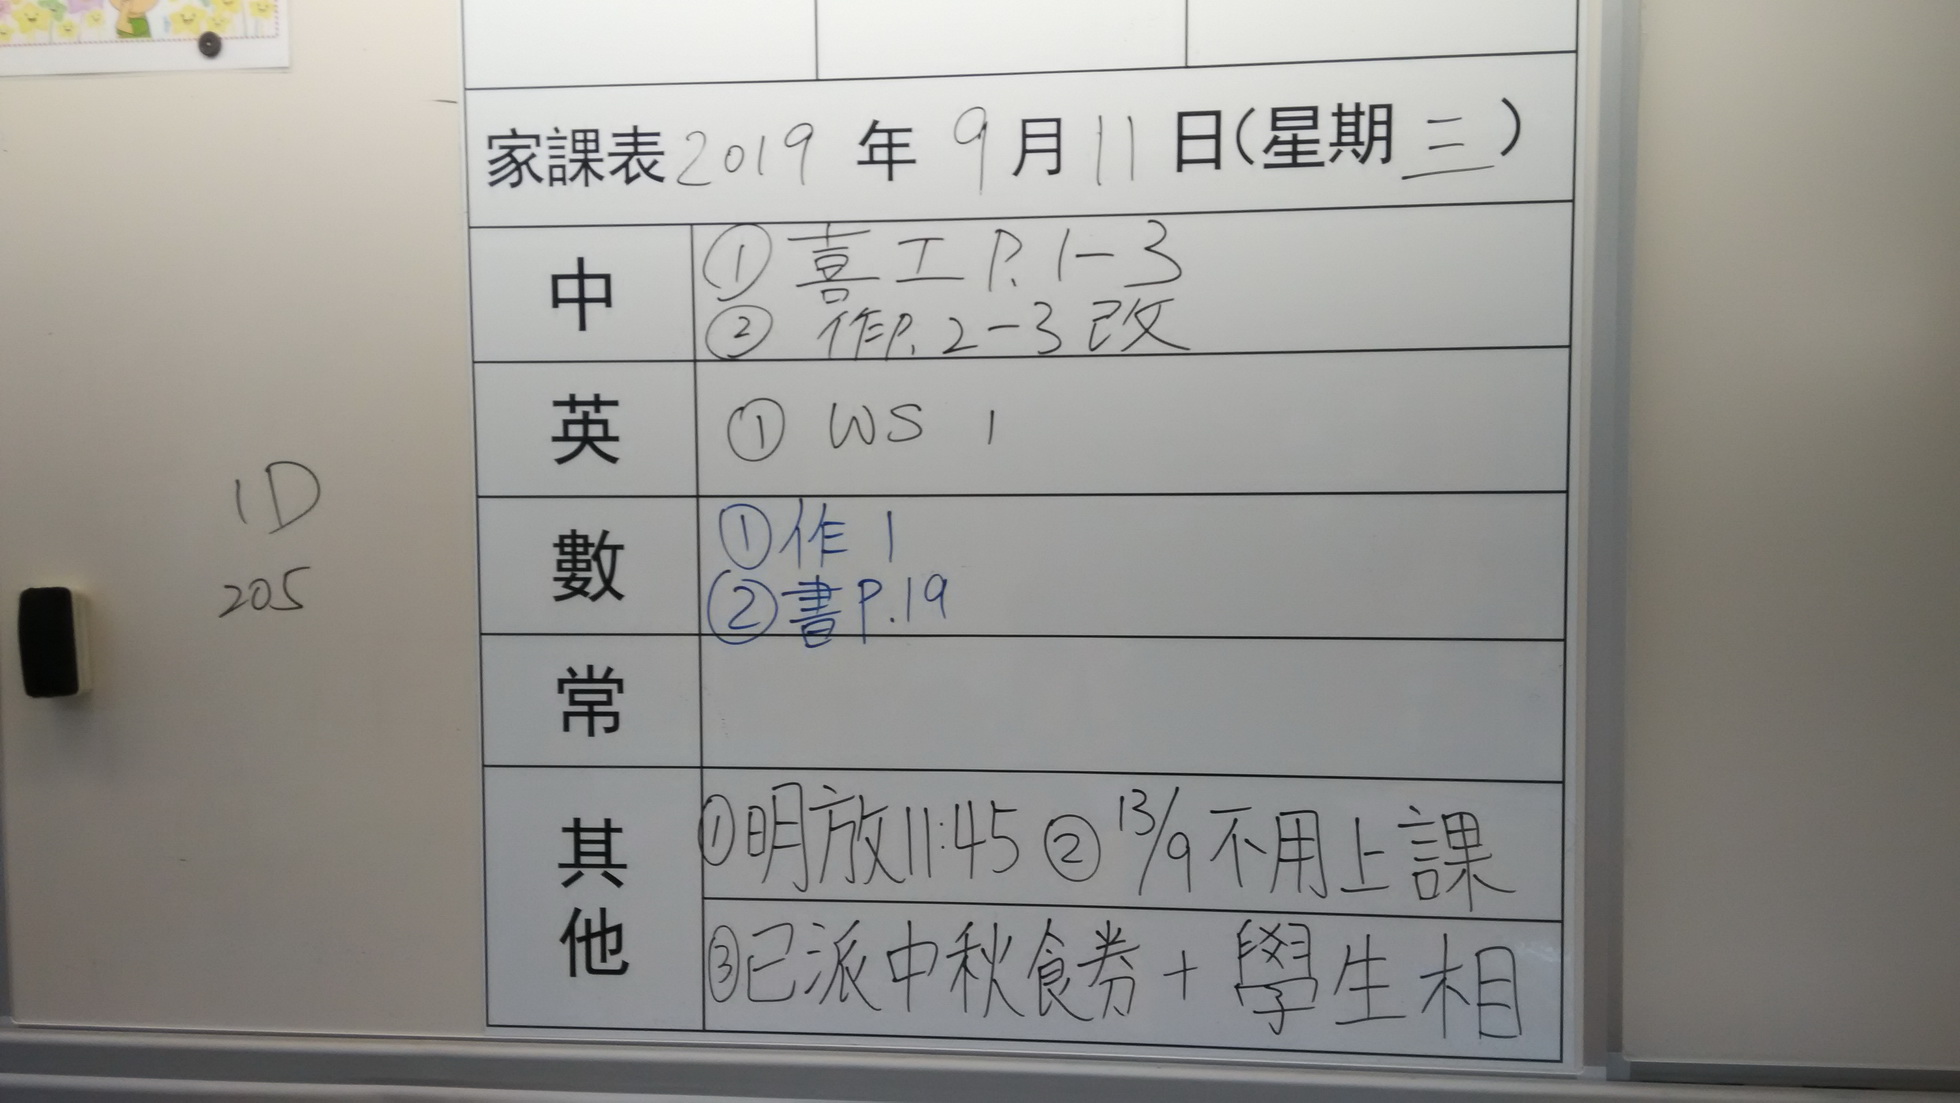 家課表 2019 年 9 月 11 日(星期 三)
中
① 喜 工 P. 1-3
② 作P. 2-3 改
英
① WS 1
數
① 作 1
② 書 P.19
常
其他
①明放11:45 ② 13/9 不用上課
③已派中秋食券 + 學生相
1D
205